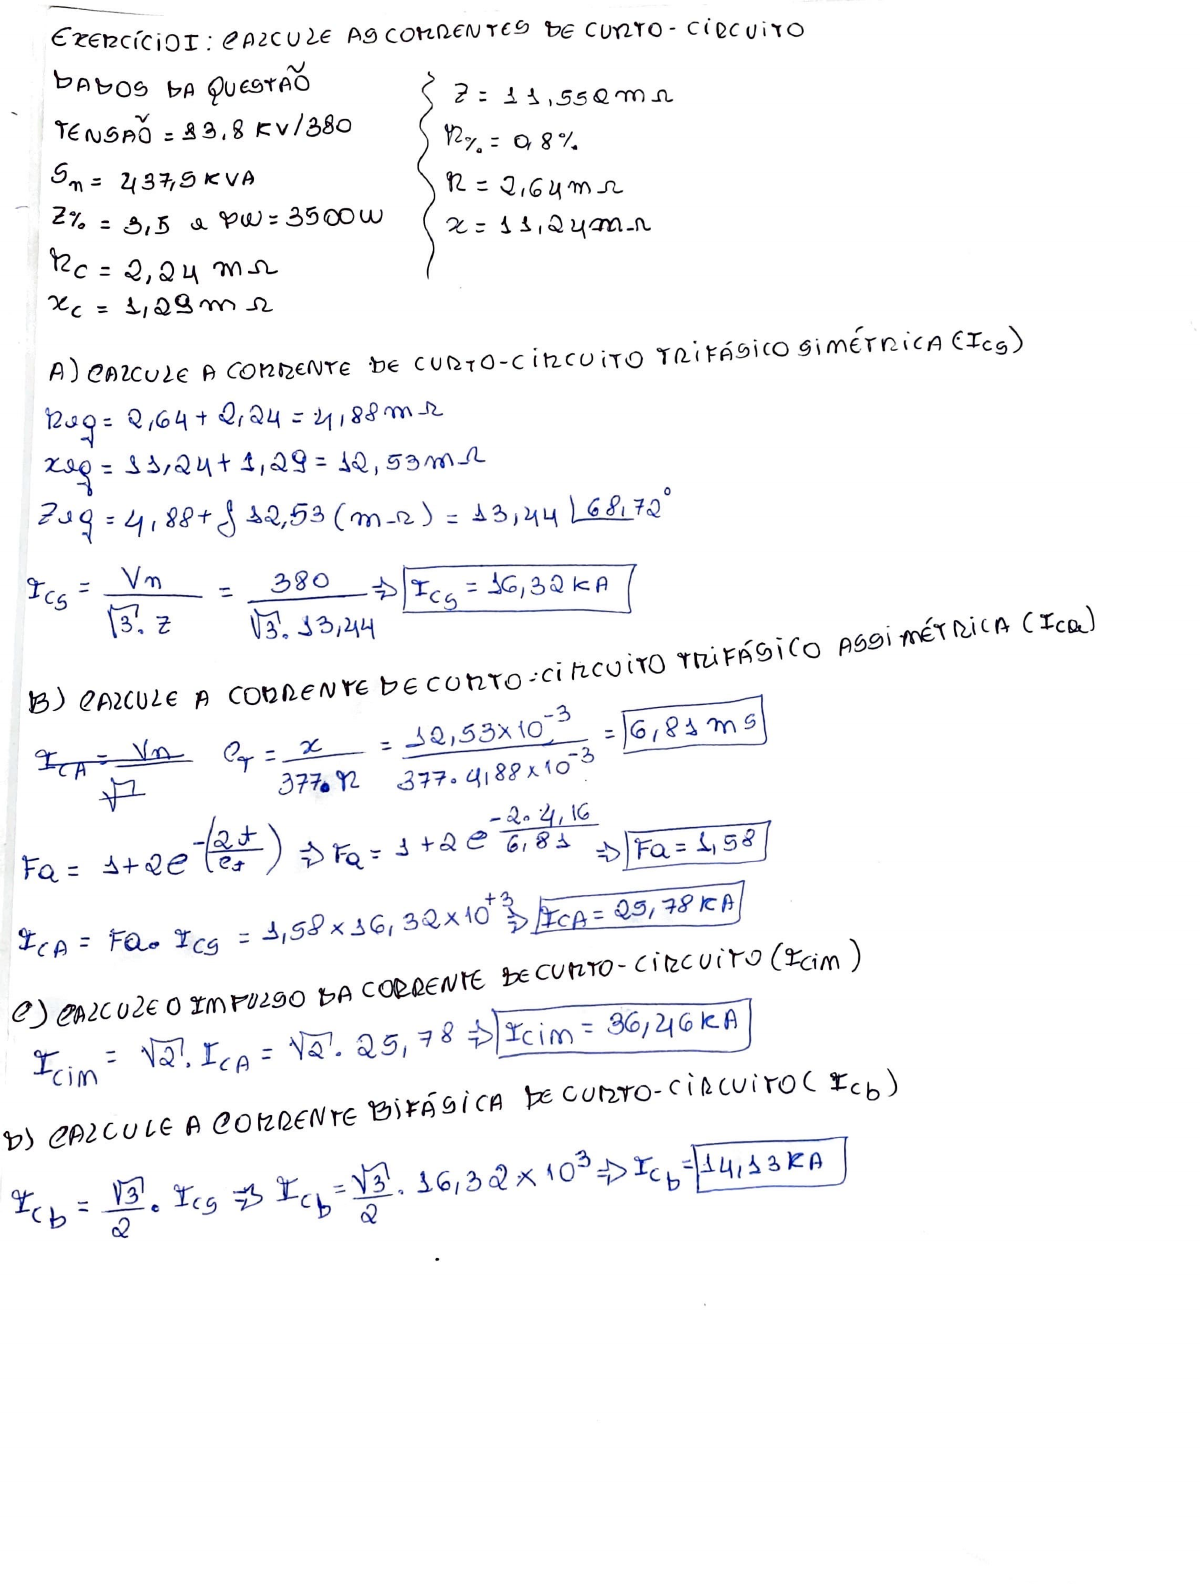 EXERCÍCIO I: CALCULE AS CORRENTES DE CURTO-CIRCUITO
DADOS DA QUESTÃO
TENSÃO = 13,8 KV/380
Sn = 437,5 KVA
Z% = 3,5 e PW = 3500W
Rc = 2,24 mΩ
xc = 1,29 mΩ
Z = 11,552 mΩ
R% = 0,8%
R = 2,64 mΩ
x = 11,24 mΩ
A) CALCULE A CORRENTE DE CURTO-CIRCUITO TRIFÁSICO SIMÉTRICA (Ics)
Req = 2,64 + 2,24 = 4,88 mΩ
xeq = 11,24 + 1,29 = 12,53 mΩ
Zeq = 4,88 + j 12,53 (mΩ) = 13,44 ∠68,72°
Ics = Vn / √3 . Z = 380 / √3 . 13,44 ⇒ Ics = 16,32 KA
B) CALCULE A CORRENTE DE CURTO-CIRCUITO TRIFÁSICO ASSIMÉTRICA (Ica)
ICA = Vn / √ CT = x / 377.R = 12,53x10⁻³ / 377.4,88x10⁻³ = 6,81 ms
Fa = 1+2e^-(2t/Ct) ⇒ Fa = 1+2e^(-2.4,16/6,81) ⇒ Fa = 1,58
ICA = Fa. Ics = 1,58 x 16,32 x 10⁺³ ⇒ ICA = 25,78 KA
C) CALCULE O IMPULSO DA CORRENTE DE CURTO-CIRCUITO (Icim)
Icim = √2 . ICA = √2 . 25,78 ⇒ Icim = 36,46 KA
D) CALCULE A CORRENTE BIFÁSICA DE CURTO-CIRCUITO (Icb)
Icb = √3/2 . Ics ⇒ Icb = √3/2 . 16,32 x 10³ ⇒ Icb = 14,13 KA